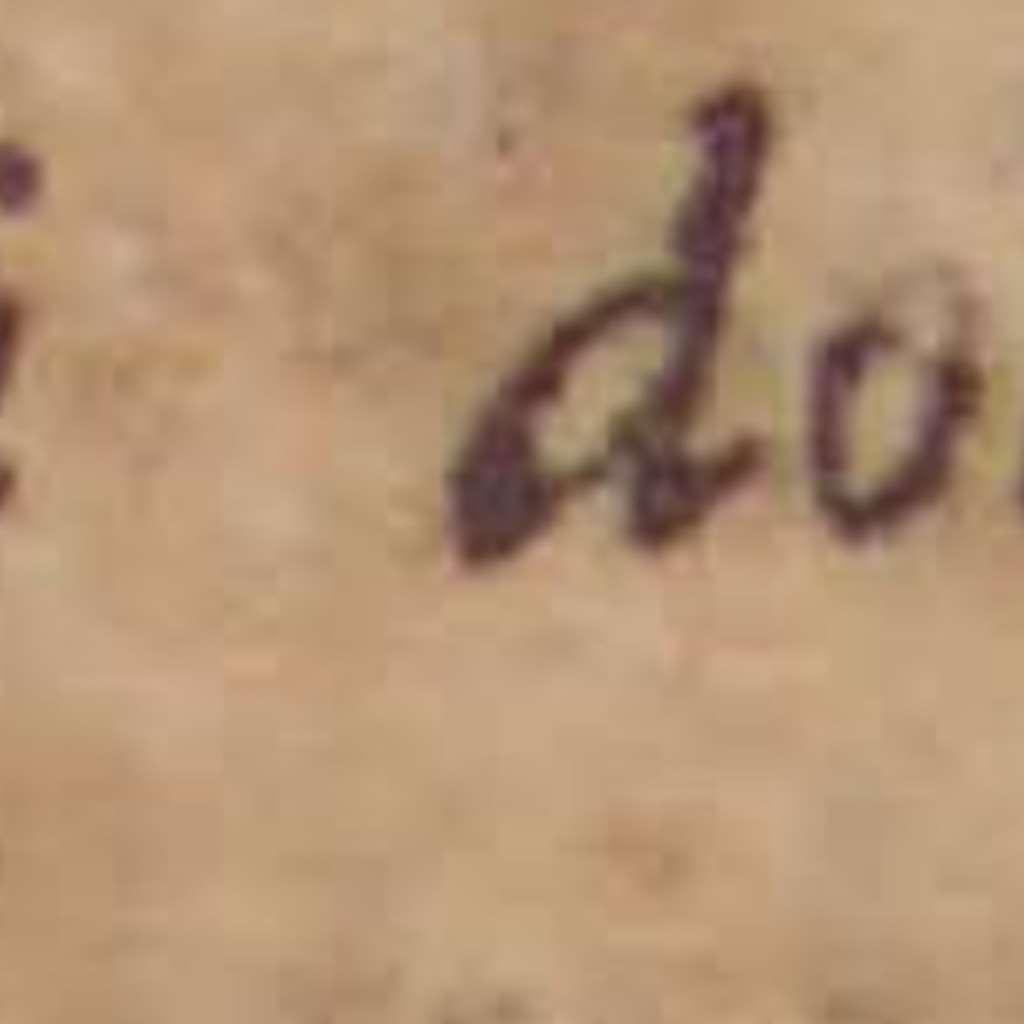 i do